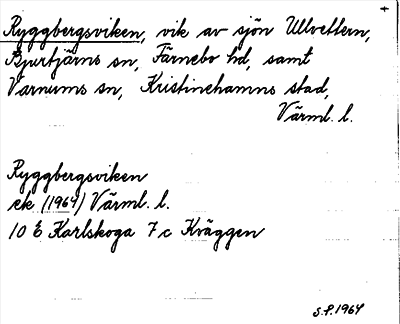 Ryggbergsviken, vik av sjön Ullvettern,
Bjurtjärns sn, Färnebo hd, samt
Varnums sn, Kristinehamns stad,
Värml. l.
Ryggbergsviken
ek (1964) Värml. l.
10 E Karlskoga 7 c Kväggen
S.P. 1964